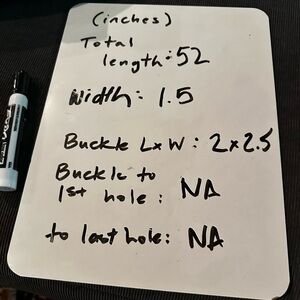 (inches)
Total
length: 52
Width: 1.5
Buckle LxW: 2x2.5
Buckle to
1st hole: NA
to last hole: NA